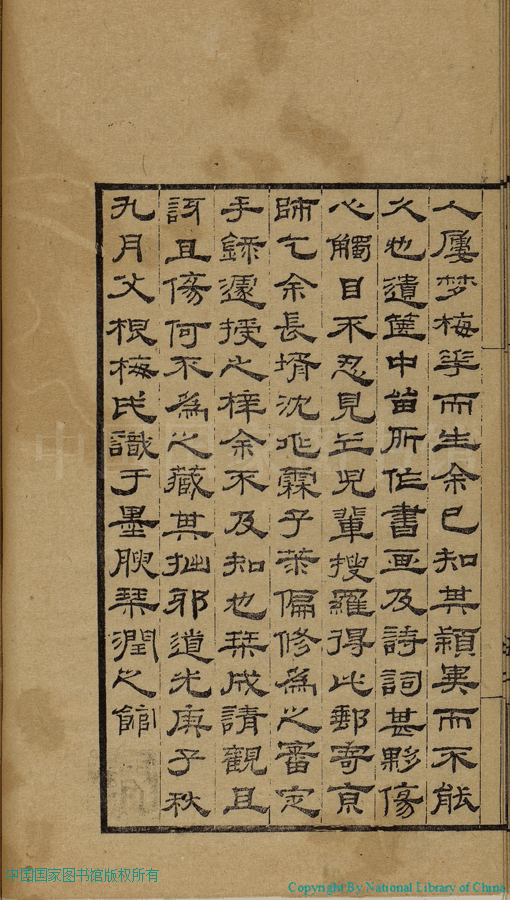 人屢梦梅華而生余已知其穎異而不能
久也遺篋中留所作書画及詩詞甚夥傷
心觸目不忍見兒輩搜羅得此郵寄京
師乞余長壻沈兆霖子菉偏修為之審定
手錄遽授之梓余不及知也栞成請觀且
訝且傷何不為之藏其拙邪道光庚子秋
九月父根梅氏識于墨腴琹潤之館
中国国家图书馆版权所有
Copyright By National Library of China